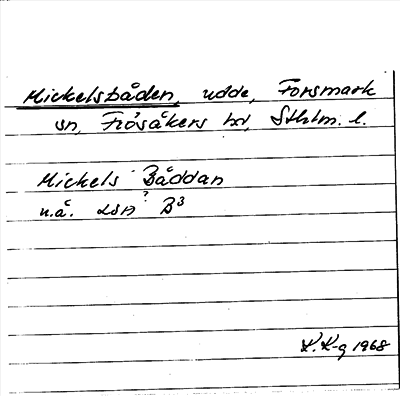 Mickelsbåden, udde, Forsmark
sn, Frösåkers hd, Sthlm. l.
Mickels Båddan
u.å. LSA? B3
K. K-g 1968